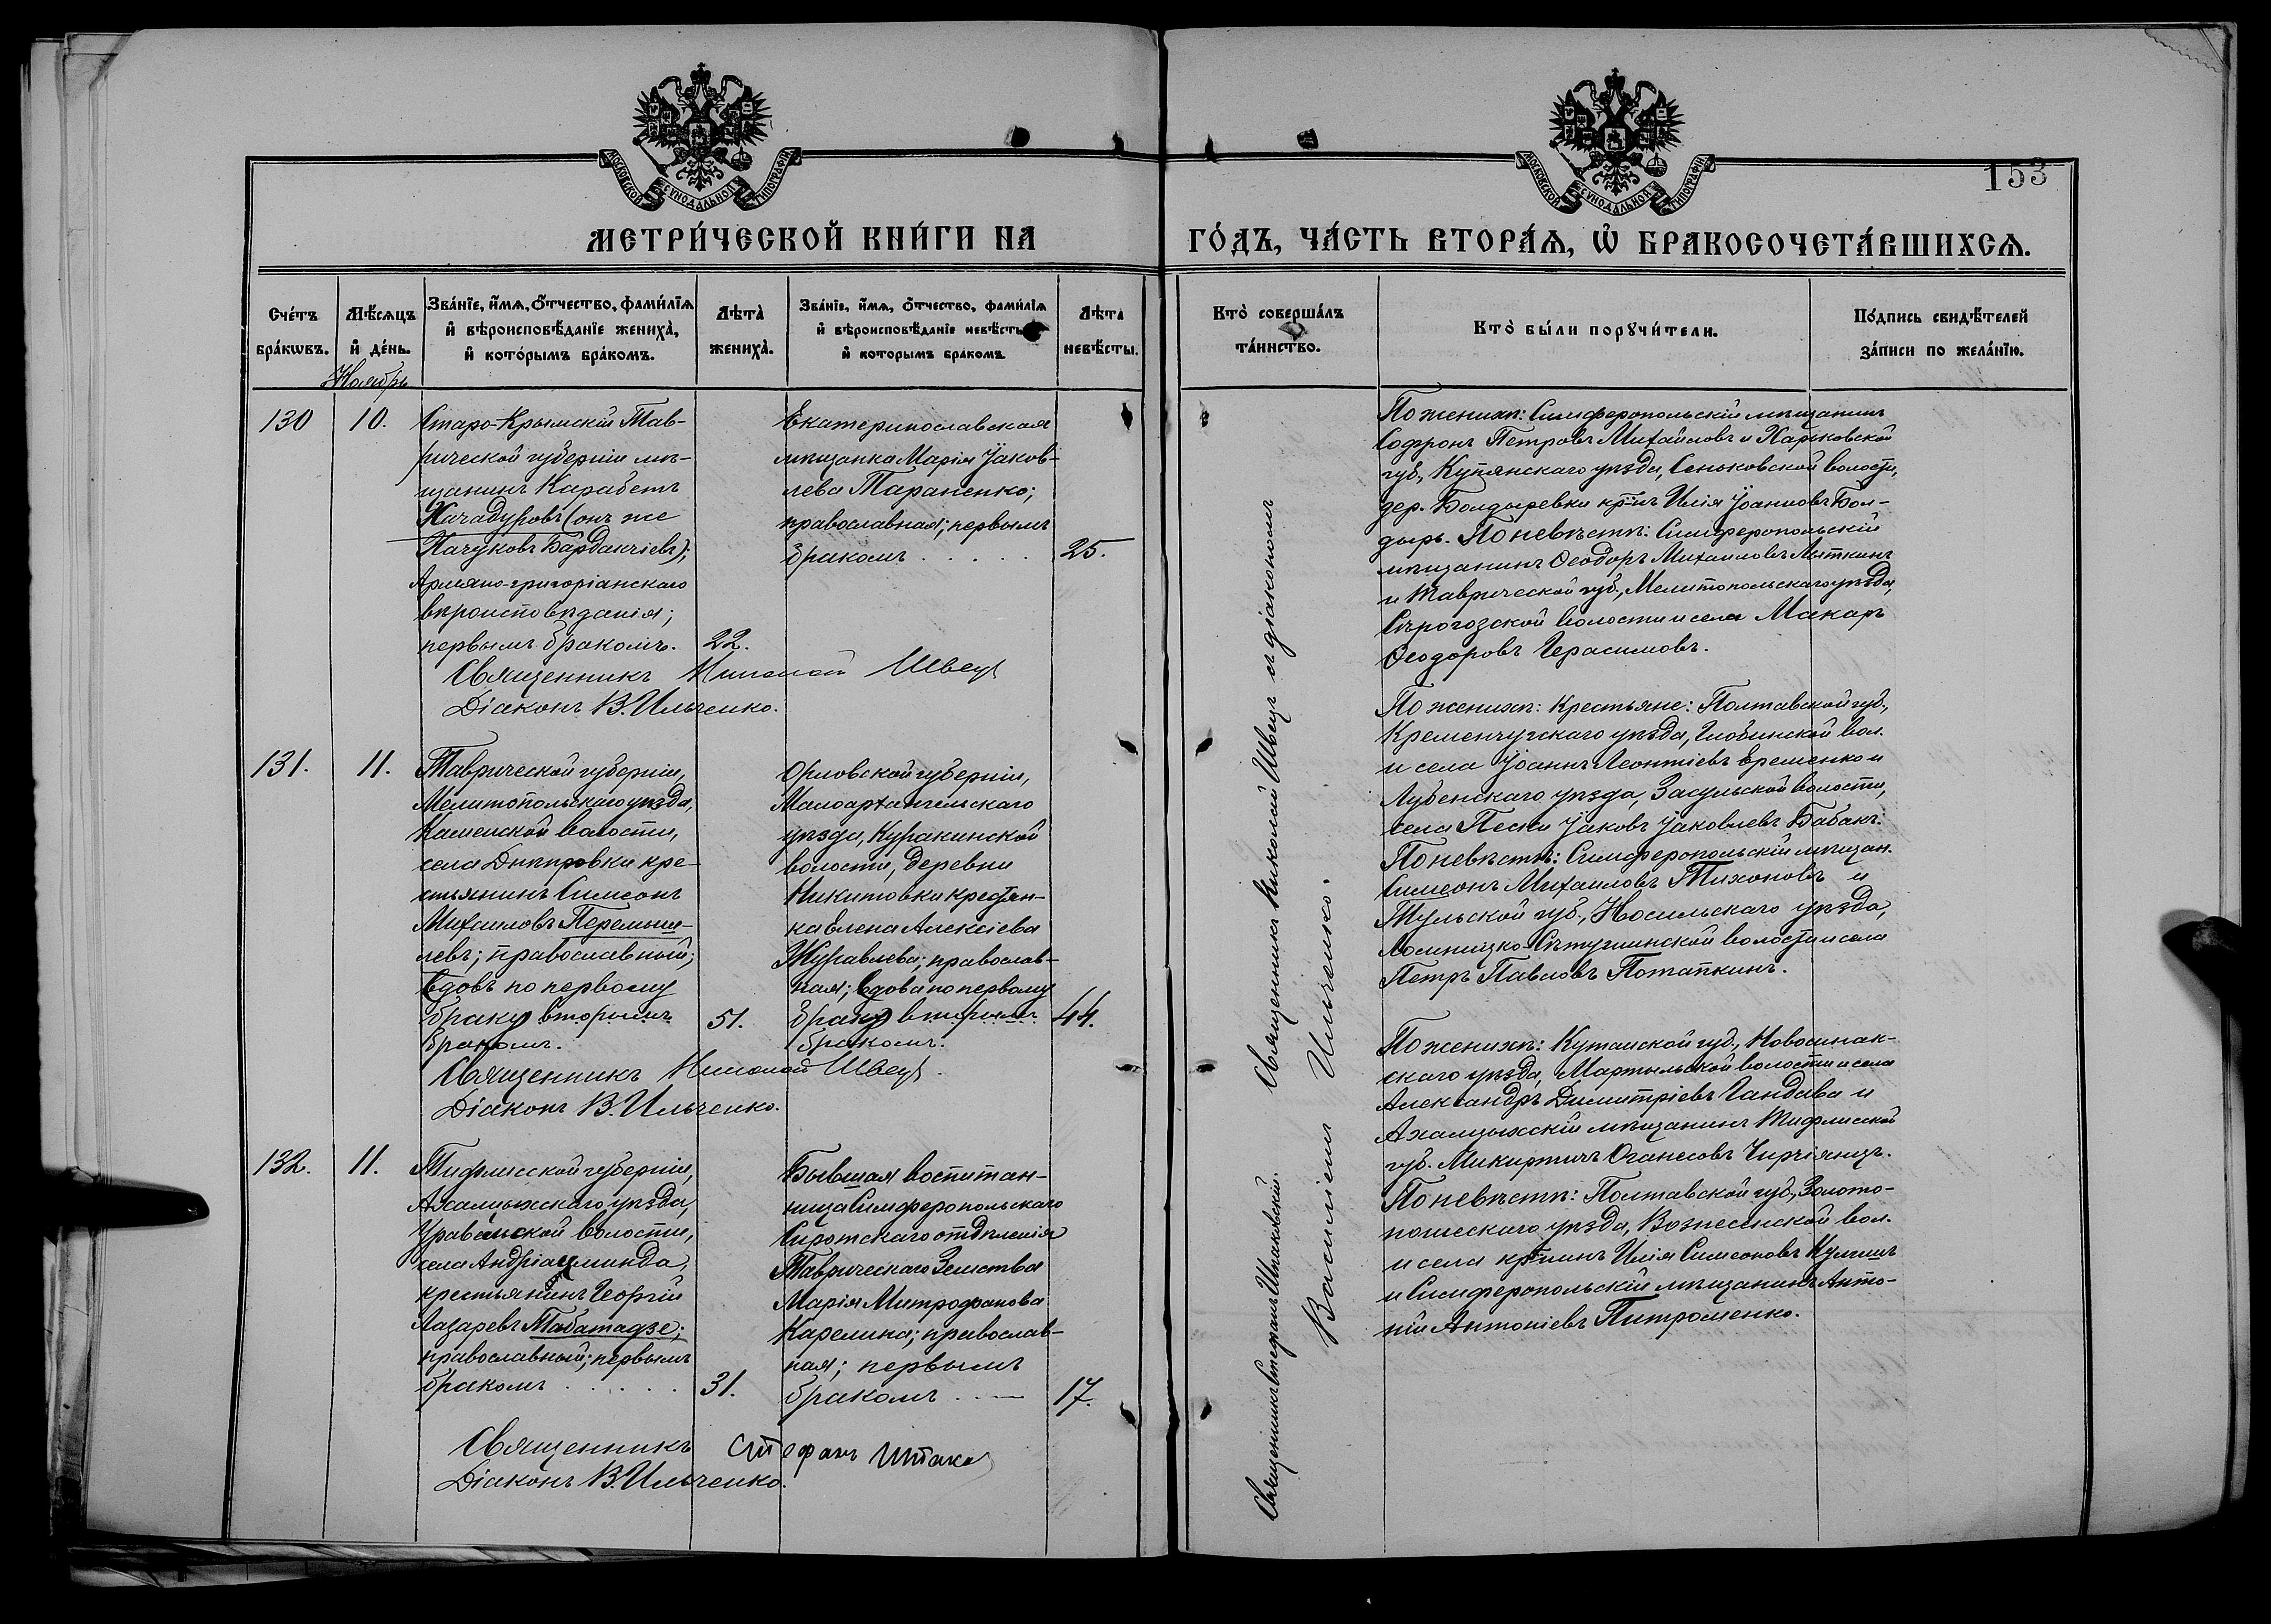 МОСКОВСКОЙ СѴНОДАЛЬНОЙ ТИПОГРАФІИ
МОСКОВСКОЙ СѴНОДАЛЬНОЙ ТИПОГРАФІИ
153
МЕТРИ́ЧЕСКОЙ КНИ́ГИ НА
ГО́ДЪ, ЧА́СТЬ ВТОРА́Ѧ, Ѽ БРАКОСОЧЕТА́ВШИХСѦ.
Сче́тъ бра́кѡвъ.
Мѣ́сѧцъ и҆ де́нь.
Зва́нїе, и҆́мѧ, ѻ҆́тчество, фами́лїѧ и҆ вѣроисповѣ́данїе жениха̀, и҆ кото́рымъ бра́комъ.
Лѣта̀ жениха̀.
Зва́нїе, и҆́мѧ, ѻ҆́тчество, фами́лїѧ и҆ вѣроисповѣ́данїе невѣ́сты, и҆ которымъ бракомъ.
Лѣта невѣ́сты.
Кто̀ соверша́лъ та́инство.
Кто̀ бы́ли порꙋчи́тели.
По́дпись свидѣ́телей за́писи по жела́нїю.
Ноябрь
130
10.
Старо-Крымскій Тав-
рической губерніи мѣ-
щанинъ Карабетъ
Хачадуровъ (онъ же
Хачуковъ Бардакчіевъ);
Армяно-григоріанскаго
вѣроисповѣданія;
первымъ бракомъ.
22.
Екатеринославская
мѣщанка Марія Іаков-
лева Тараненко;
православная; первымъ
бракомъ . . . .
25.
Священникъ Николай Швецъ
Діаконъ В. Ильченко.
По женихѣ: Симферопольскій мѣщанинъ
Софронъ Петровъ Михайловъ и Харьковской
губ., Купянскаго уѣзда, Сеньковской волости,
дер. Болдыревки кр-нъ Илія Іоанновъ Бол-
дырь. По невѣстѣ: Симферопольскій
мѣщанинъ Ѳеодоръ Михаиловъ Ляткинъ
и Таврической губ., Мелитопольскаго уѣзда,
Сѣрогозской волости и села Макаръ
Ѳеодоровъ Герасимовъ.
131.
11.
Таврической губерніи,
Мелитопольскаго уѣзда,
Каменской волости,
села Днѣпровки кре-
стьянинъ Симеонъ
Михаиловъ Перемыш-
левъ; православный;
вдовъ по первому
браку вторымъ
бракомъ.
51.
Орловской губерніи,
Малоархангельскаго
уѣзда, Куракинской
волости, деревни
Никитовки крестьян-
ка Елена Алексіева
Журавлева; православ-
ная; вдова по первому
браку вторымъ
бракомъ.
44.
Священникъ Николай Швецъ.
Діаконъ В. Ильченко.
По женихѣ: Крестьяне: Полтавской губ.,
Кременчугскаго уѣзда, Глобинской вол.
и села Іоаннъ Леонтіевъ Еременко и
Лубенскаго уѣзда, Засульской волости,
села Пески Іаковъ Іаковлевъ Бабакъ.
По невѣстѣ: Симферопольскій мѣщан.
Симеонъ Михаиловъ Тихоновъ и
Тульской губ., Новосильскаго уѣзда,
волости и села
Петръ Павловъ Потапкинъ.
132.
11.
Тифлисской губерніи,
Ахалцыхскаго уѣзда,
Уравельской волости,
села Андріацминда,
крестьянинъ Георгій
Лазаревъ Табатадзе;
православный; первымъ
бракомъ . . . . .
31.
Бывшая воспитан-
ница Симферопольскаго
Сиротскаго отдѣленія
Таврическаго Земства
Марія Митрофанова
Карелина; православ-
ная; первымъ
бракомъ . . —
17.
Священникъ Стефанъ
Діаконъ В. Ильченко.
По женихѣ: Кутаиской губ., Новосинак-
скаго уѣзда, Мартыльской волости и села
Александръ Димитріевъ Гандава и
Ахалцыхскій мѣщанинъ Тифлисской
губ. Микиртичъ Оганесовъ Чирчіянцъ.
По невѣстѣ: Полтавской губ., Золото-
ношскаго уѣзда, Вознесенской вол.
и села кр-нинъ Илія Симеоновъ
и Симферопольскій мѣщанинъ Анто-
ній Антоніевъ Питроменко.
Священникъ Николай Швецъ съ діакономъ
Василіемъ Ильченко.
Священникъ Стефанъ Шпаковскій.